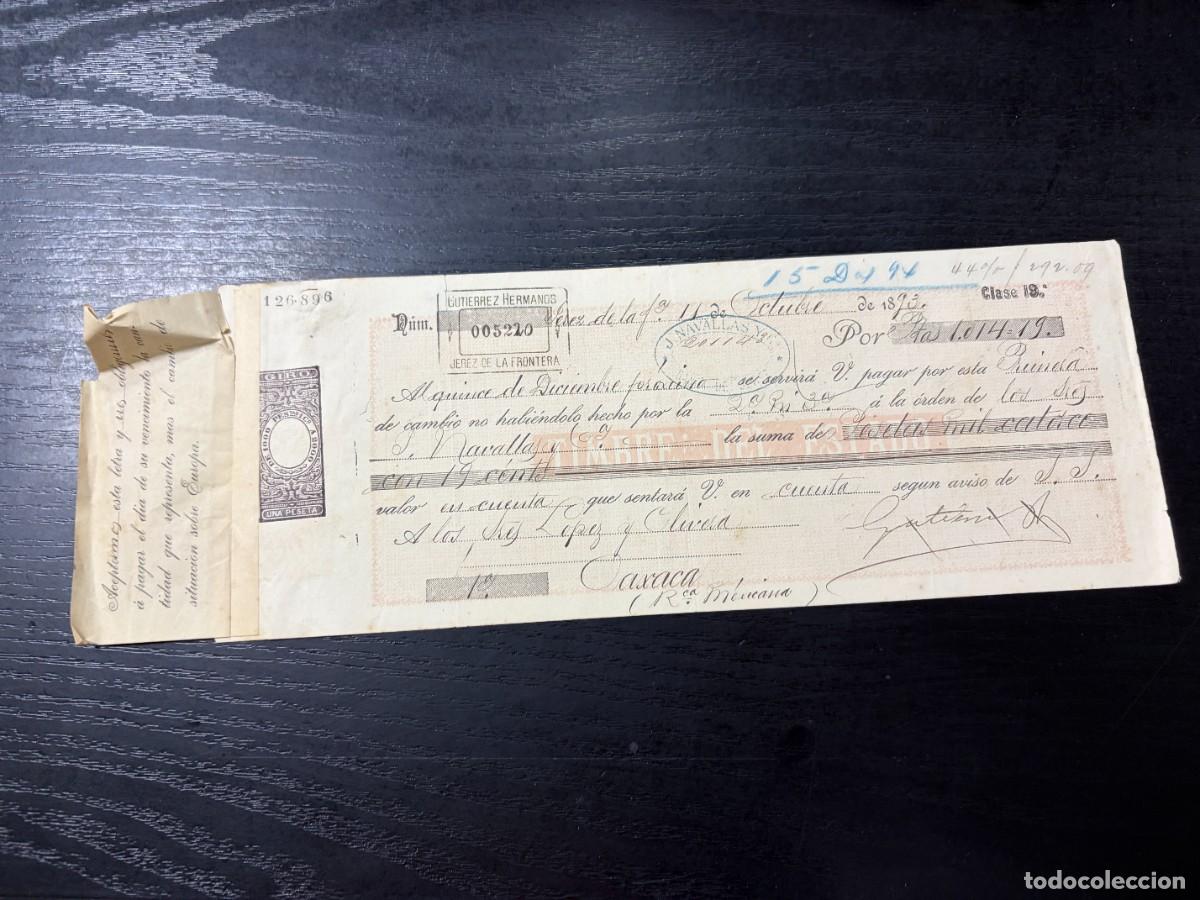 126.896
15 D 94
44% / 292.09
Núm.
GUTIERREZ HERMANOS
005220
JEREZ DE LA FRONTERA
Jerez de la Fra. 11 de Octubre de 1893.
Clase 13.ª
J. NAVALLAS Y Cª
Por Ptas 1.014-19.
Al quince de Diciembre próximo se servirá V. pagar por esta Primera
de cambio no habiéndolo hecho por la 2ª ni 3ª á la órden de los Sres
J. Navallas y Cª la suma de Pesetas mil catorce
TIMBRE DEL ESTADO
con 19 cents
valor en cuenta que sentará V. en cuenta segun aviso de S. S.
A los Sres Lopez y Olivera
Gutierrez H
1ª
Oaxaca
(Rca Mexicana)
GIRO
DE 1000 PESETAS Á 2000
UNA PESETA
Aceptamos esta letra y nos obligamos
á pagar el dia de su vencimiento la can-
tidad que representa, mas el cambio de
situacion sobre Europa.
todocoleccion